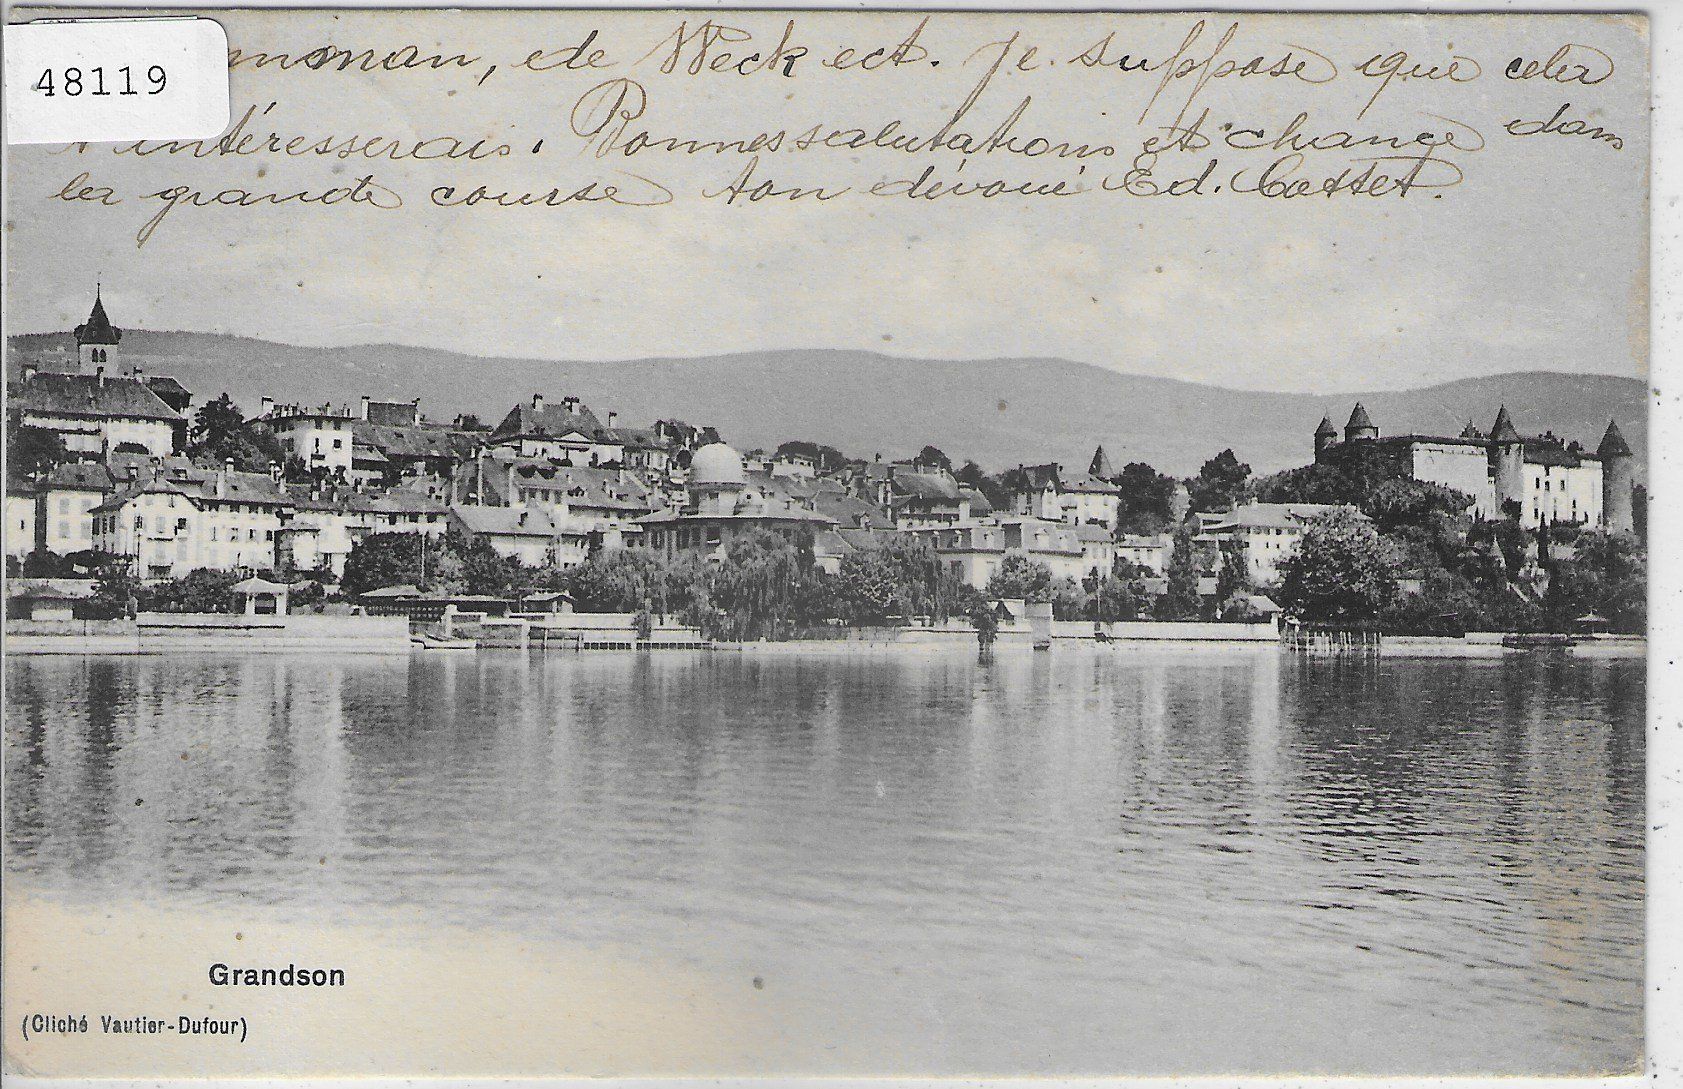 48119
de Weck ect. Je suppose que cela
t'intéresserais. Bonnes salutations et chance dans
la grande course ton dévoué Ed. Cottet.
Grandson
(Cliché Vautier-Dufour)